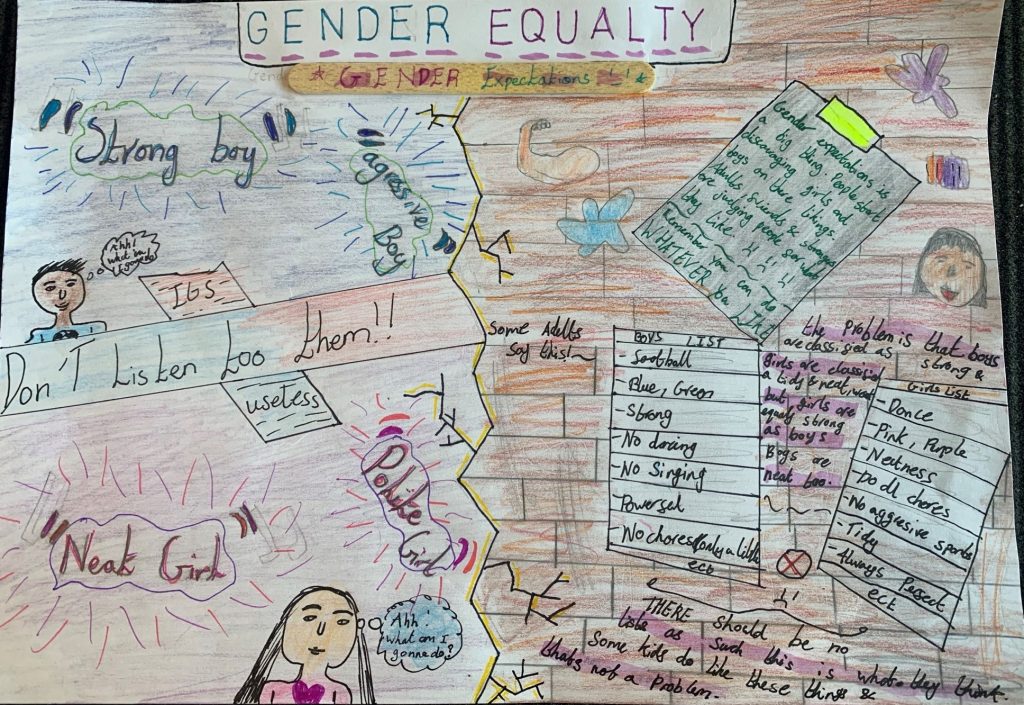 GENDER EQUALTY
GENDER Expectations !!
Strong boy
agressive
Boy
Ahh!
what am
I gonna do
IGS
Don'T Listen too them!!
useless
Polite
Girl
Neat Girl
Ahh.
what am I
gonna do?
Gender expectations is
a big thing. People start
discouraging girls and
boys on there likings.
Adults, friends &
are judging people for what
they like !! !!
Remember you can do
WHATEVER you LIKE!
Some Adults
Say this!~
BOYS LIST
- Football
- Blue, Green
- Strong
- No dancing
- No Singing
- Powerful
- No chores (only a little
ect
the Problem is that boys
are classified as strong &
Girls are classified
a tidy & neat, weak
but, girls are
equaly strong
as boys
Boys are
neat too.
Girls LIST
- Dance
- Pink, Purple
- Neatness
- Do all chores
- No aggresive sports
- Tidy
- Always Perfect
ect
THERE should be no
lists as such this is what they think.
Some kids do like these things &
thats not a Problem.